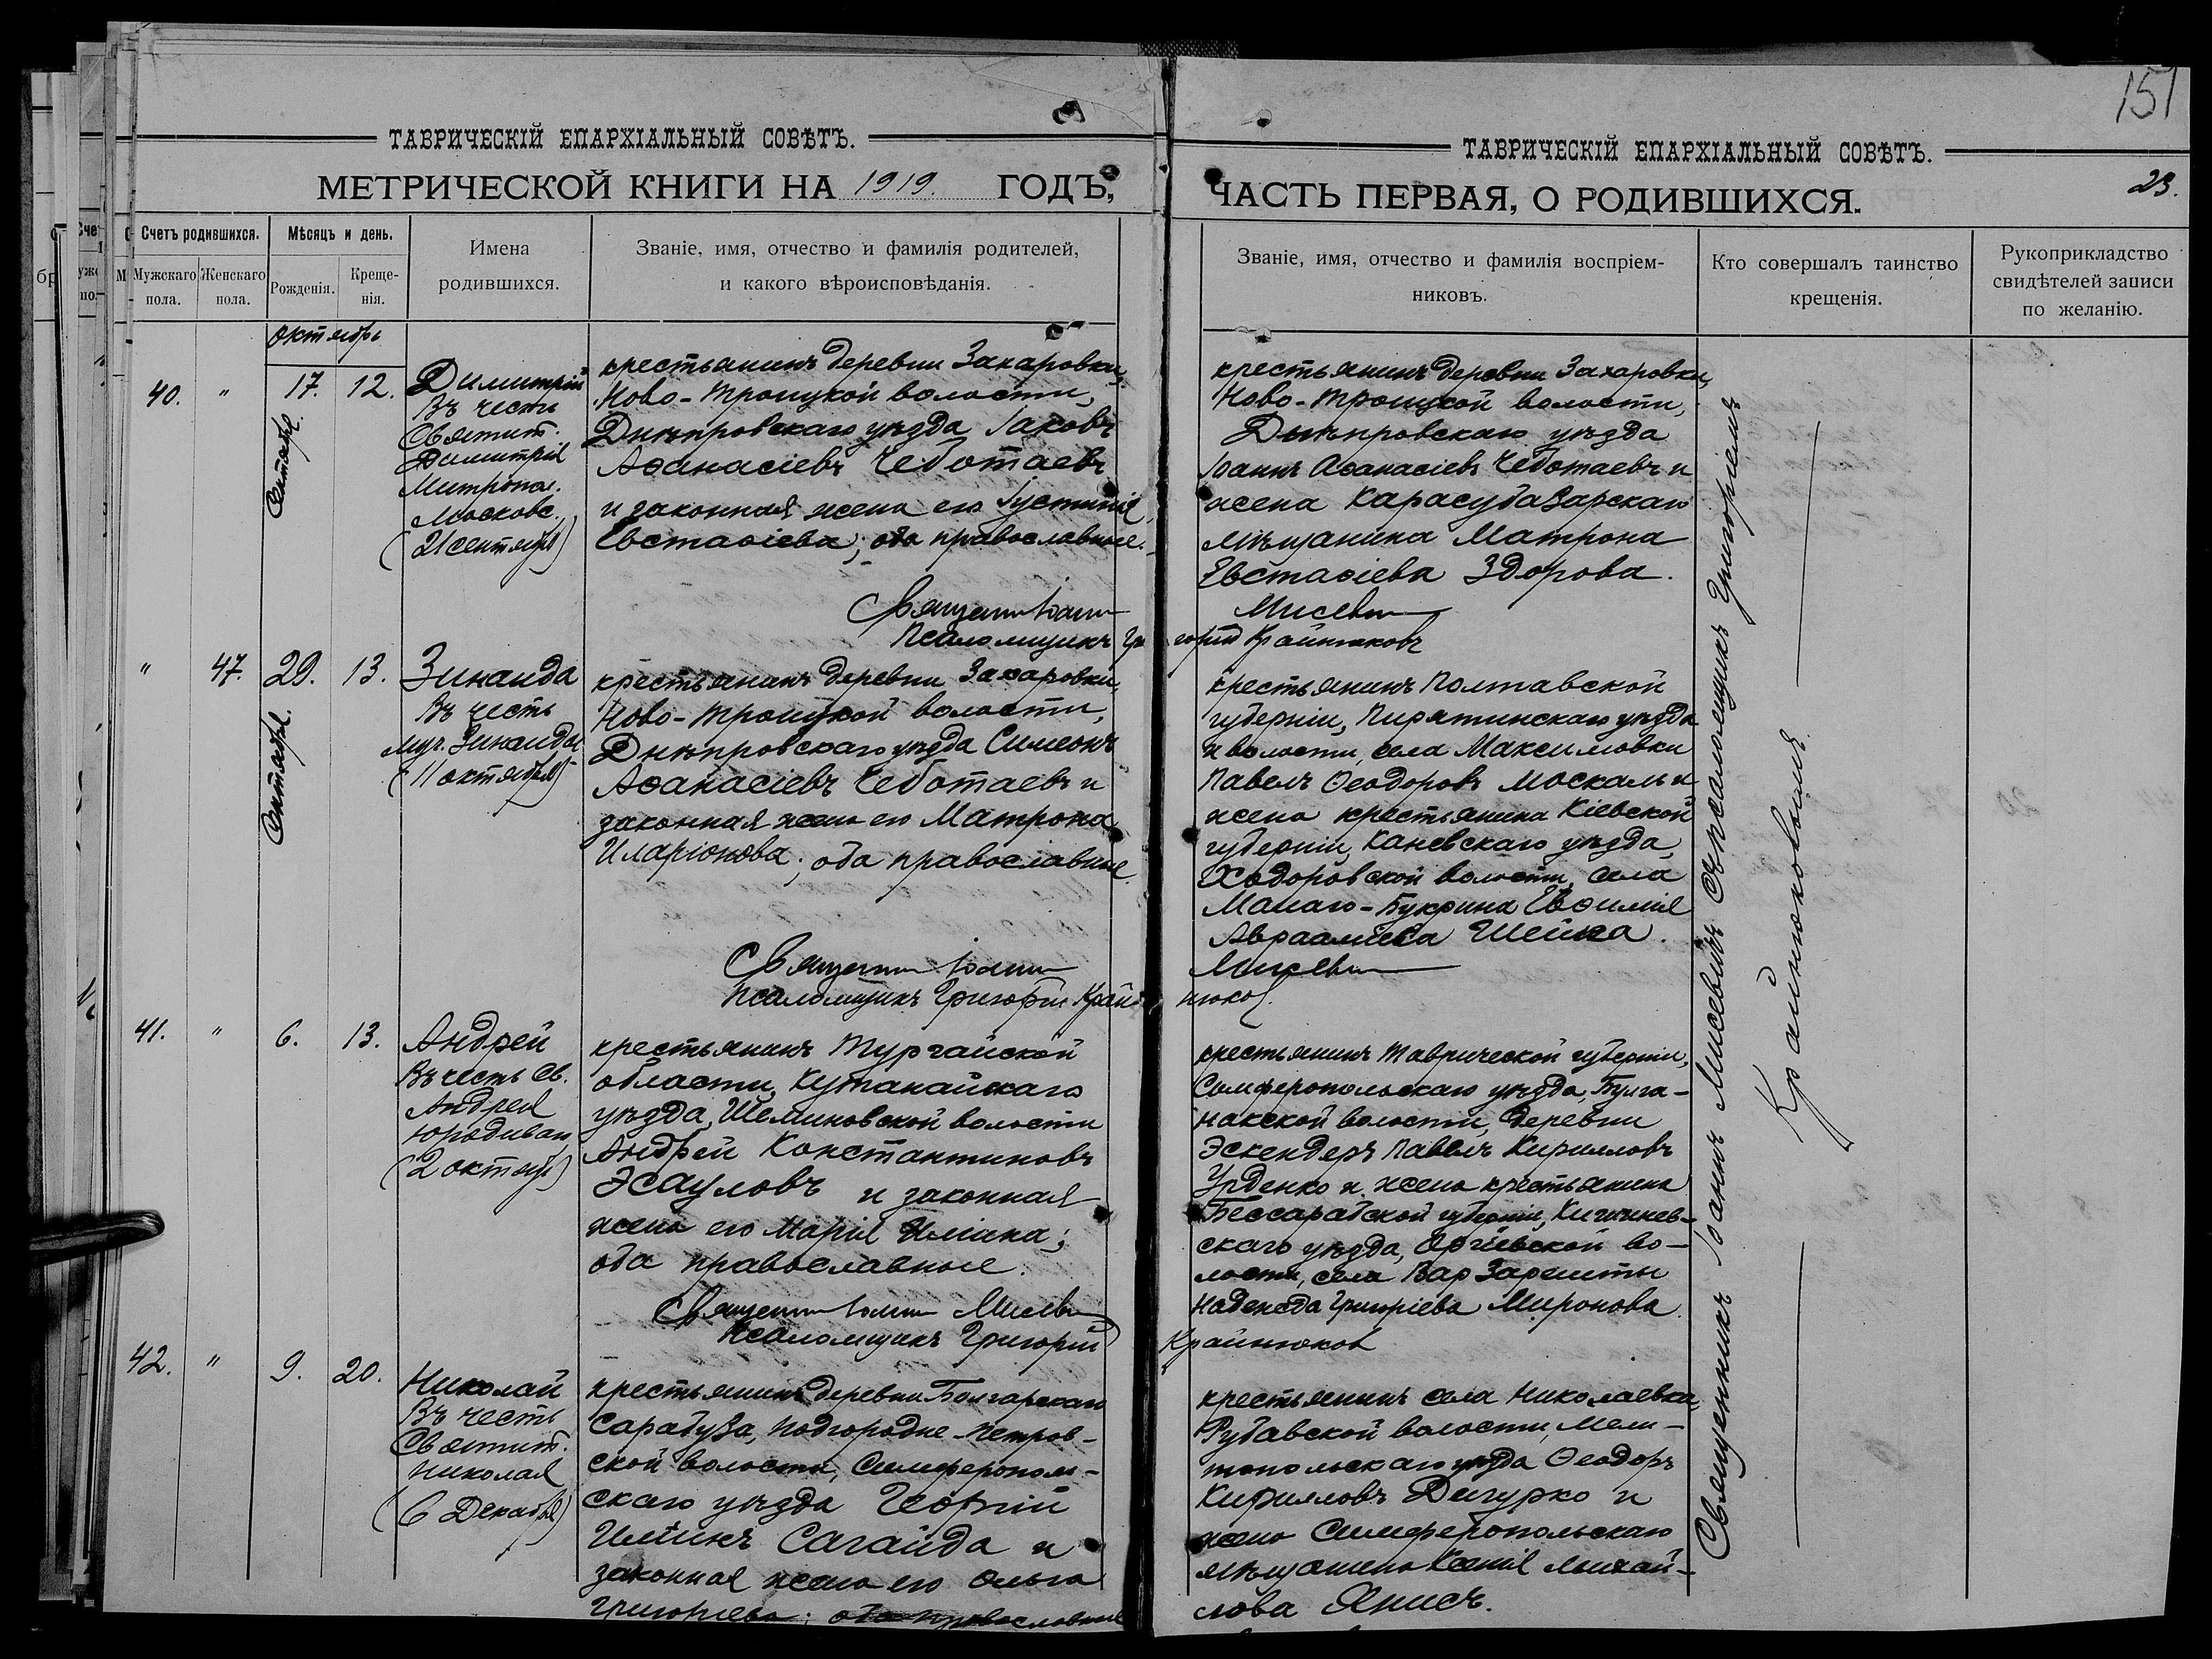 151
ТАВРИЧЕСКІЙ ЕПАРХІАЛЬНЫЙ СОВѢТЪ.
МЕТРИЧЕСКОЙ КНИГИ НА 1919. ГОДЪ,
Счетъ родившихся.
Мужскаго пола.
Женскаго пола.
Мѣсяцъ и день.
Рожденія.
Креще-
нія.
Имена
родившихся.
Званіе, имя, отчество и фамилія родителей,
и какого вѣроисповѣданія.
октябрь
40. " 17. 12.
Сентябр.
Димитрій
Въ честь
Святит.
Димитрія
Митропол.
Московс.
(21 сентября)
крестьянинъ деревни Захаровки,
Ново-Троицкой волости,
Днѣпровскаго уѣзда Іаковъ
Аѳанасіевъ Чеботаевъ
и законная жена его Іустинія
Евстаѳіева; оба православные.
Священникъ Іоаннъ
Псаломщикъ Гри
" 47. 29. 13.
Сентябр.
Зинаида
Въ честь
муч. Зинаиды
(11 октября)
крестьянинъ деревни Захаровки,
Ново-Троицкой волости,
Днѣпровскаго уѣзда Симеонъ
Аѳанасіевъ Чеботаевъ и
законная жена его Матрона
Иларіонова; оба православные.
Священникъ Іоаннъ
Псаломщикъ Григорій Край-
41. " 6. 13.
Андрей
Въ честь Св.
Андрея
юродиваго
(2 октябр)
крестьянинъ Тургайской
области, Кустанайскаго
уѣзда, Шеминовской волости
Андрей Константиновъ
Эсауловъ и законная
жена его Марія Ильина;
оба православные.
Священникъ Іоаннъ Мисевич
Псаломщикъ Григорій
42. " 9. 20.
Николай
Въ честь
Святит.
Николая
(6 Декабря)
крестьянинъ деревни Болгарскаго
Сарабуза, Подгородне-Петров-
ской волости, Симферополь-
скаго уѣзда Георгій
Ильинъ Сагайда и
законная жена его Ольга
Григорьева; оба православные
ТАВРИЧЕСКІЙ ЕПАРХІАЛЬНЫЙ СОВѢТЪ.
ЧАСТЬ ПЕРВАЯ, О РОДИВШИХСЯ.
23.
Званіе, имя, отчество и фамилія воспріем-
никовъ.
Кто совершалъ таинство
крещенія.
Рукоприкладство
свидѣтелей записи
по желанію.
крестьянинъ деревни Захаровки,
Ново-Троицкой волости,
Днѣпровскаго уѣзда
Іоаннъ Аѳанасіевъ Чеботаевъ и
жена Карасубазарскаго
мѣщанина Матрона
Евстаѳіева Здорова.
Мисевич
горій Крайнюковъ
крестьянинъ Полтавской
губерніи, Пирятинскаго уѣзда
и волости, села Максимовки
Павелъ Ѳеодоровъ Москаль и
жена крестьянина Кіевской
губерніи, Каневскаго уѣзда,
Ходоровской волости, села
Малаго-Букрина Евѳимія
Авраамиева Шейка.
Мисевич
нюков.
крестьянинъ Таврической губерніи,
Симферопольскаго уѣзда, Булга-
накской волости, деревни
Эскендеръ Павелъ Кирилловъ
Урденко и жена крестьянина
Бессарабской губерніи, Кишинев-
скаго уѣзда, Оргіевской во-
лости, села Вар Зарешты
Надежда Григоріева Миронова.
Крайнюков
крестьянинъ села Николаевки,
Рубавской волости, Мели-
топольскаго уѣзда Ѳеодоръ
Кирилловъ Дигурко и
жена Симферопольскаго
мѣщанина Ксенія Михай-
лова Янисъ.
Священникъ Іоаннъ Мисевичъ съ псаломщикомъ Григоріемъ
Крайнюковымъ.